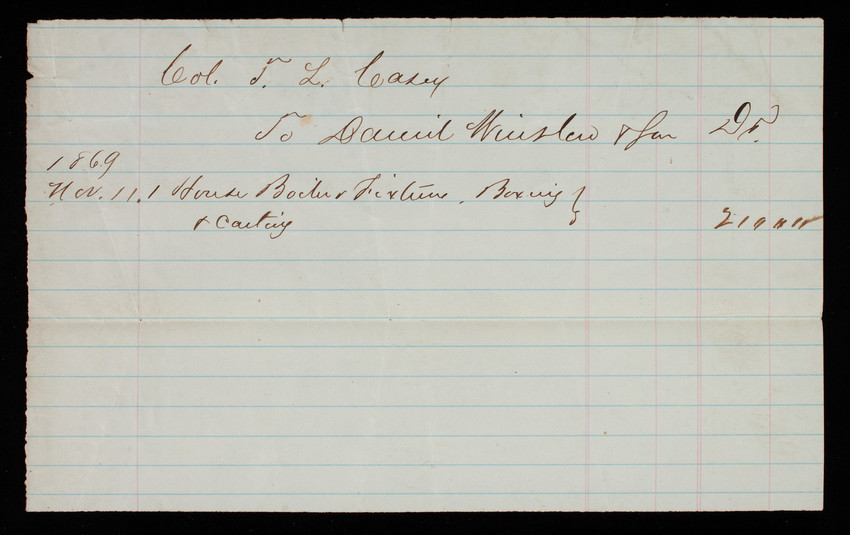 Col. T. L. Casey
To Daniel Winslow & Son Dr.
1869
Nov. 11. 1 House Boiler & Fixture, Boxing }
& Carting 210 00